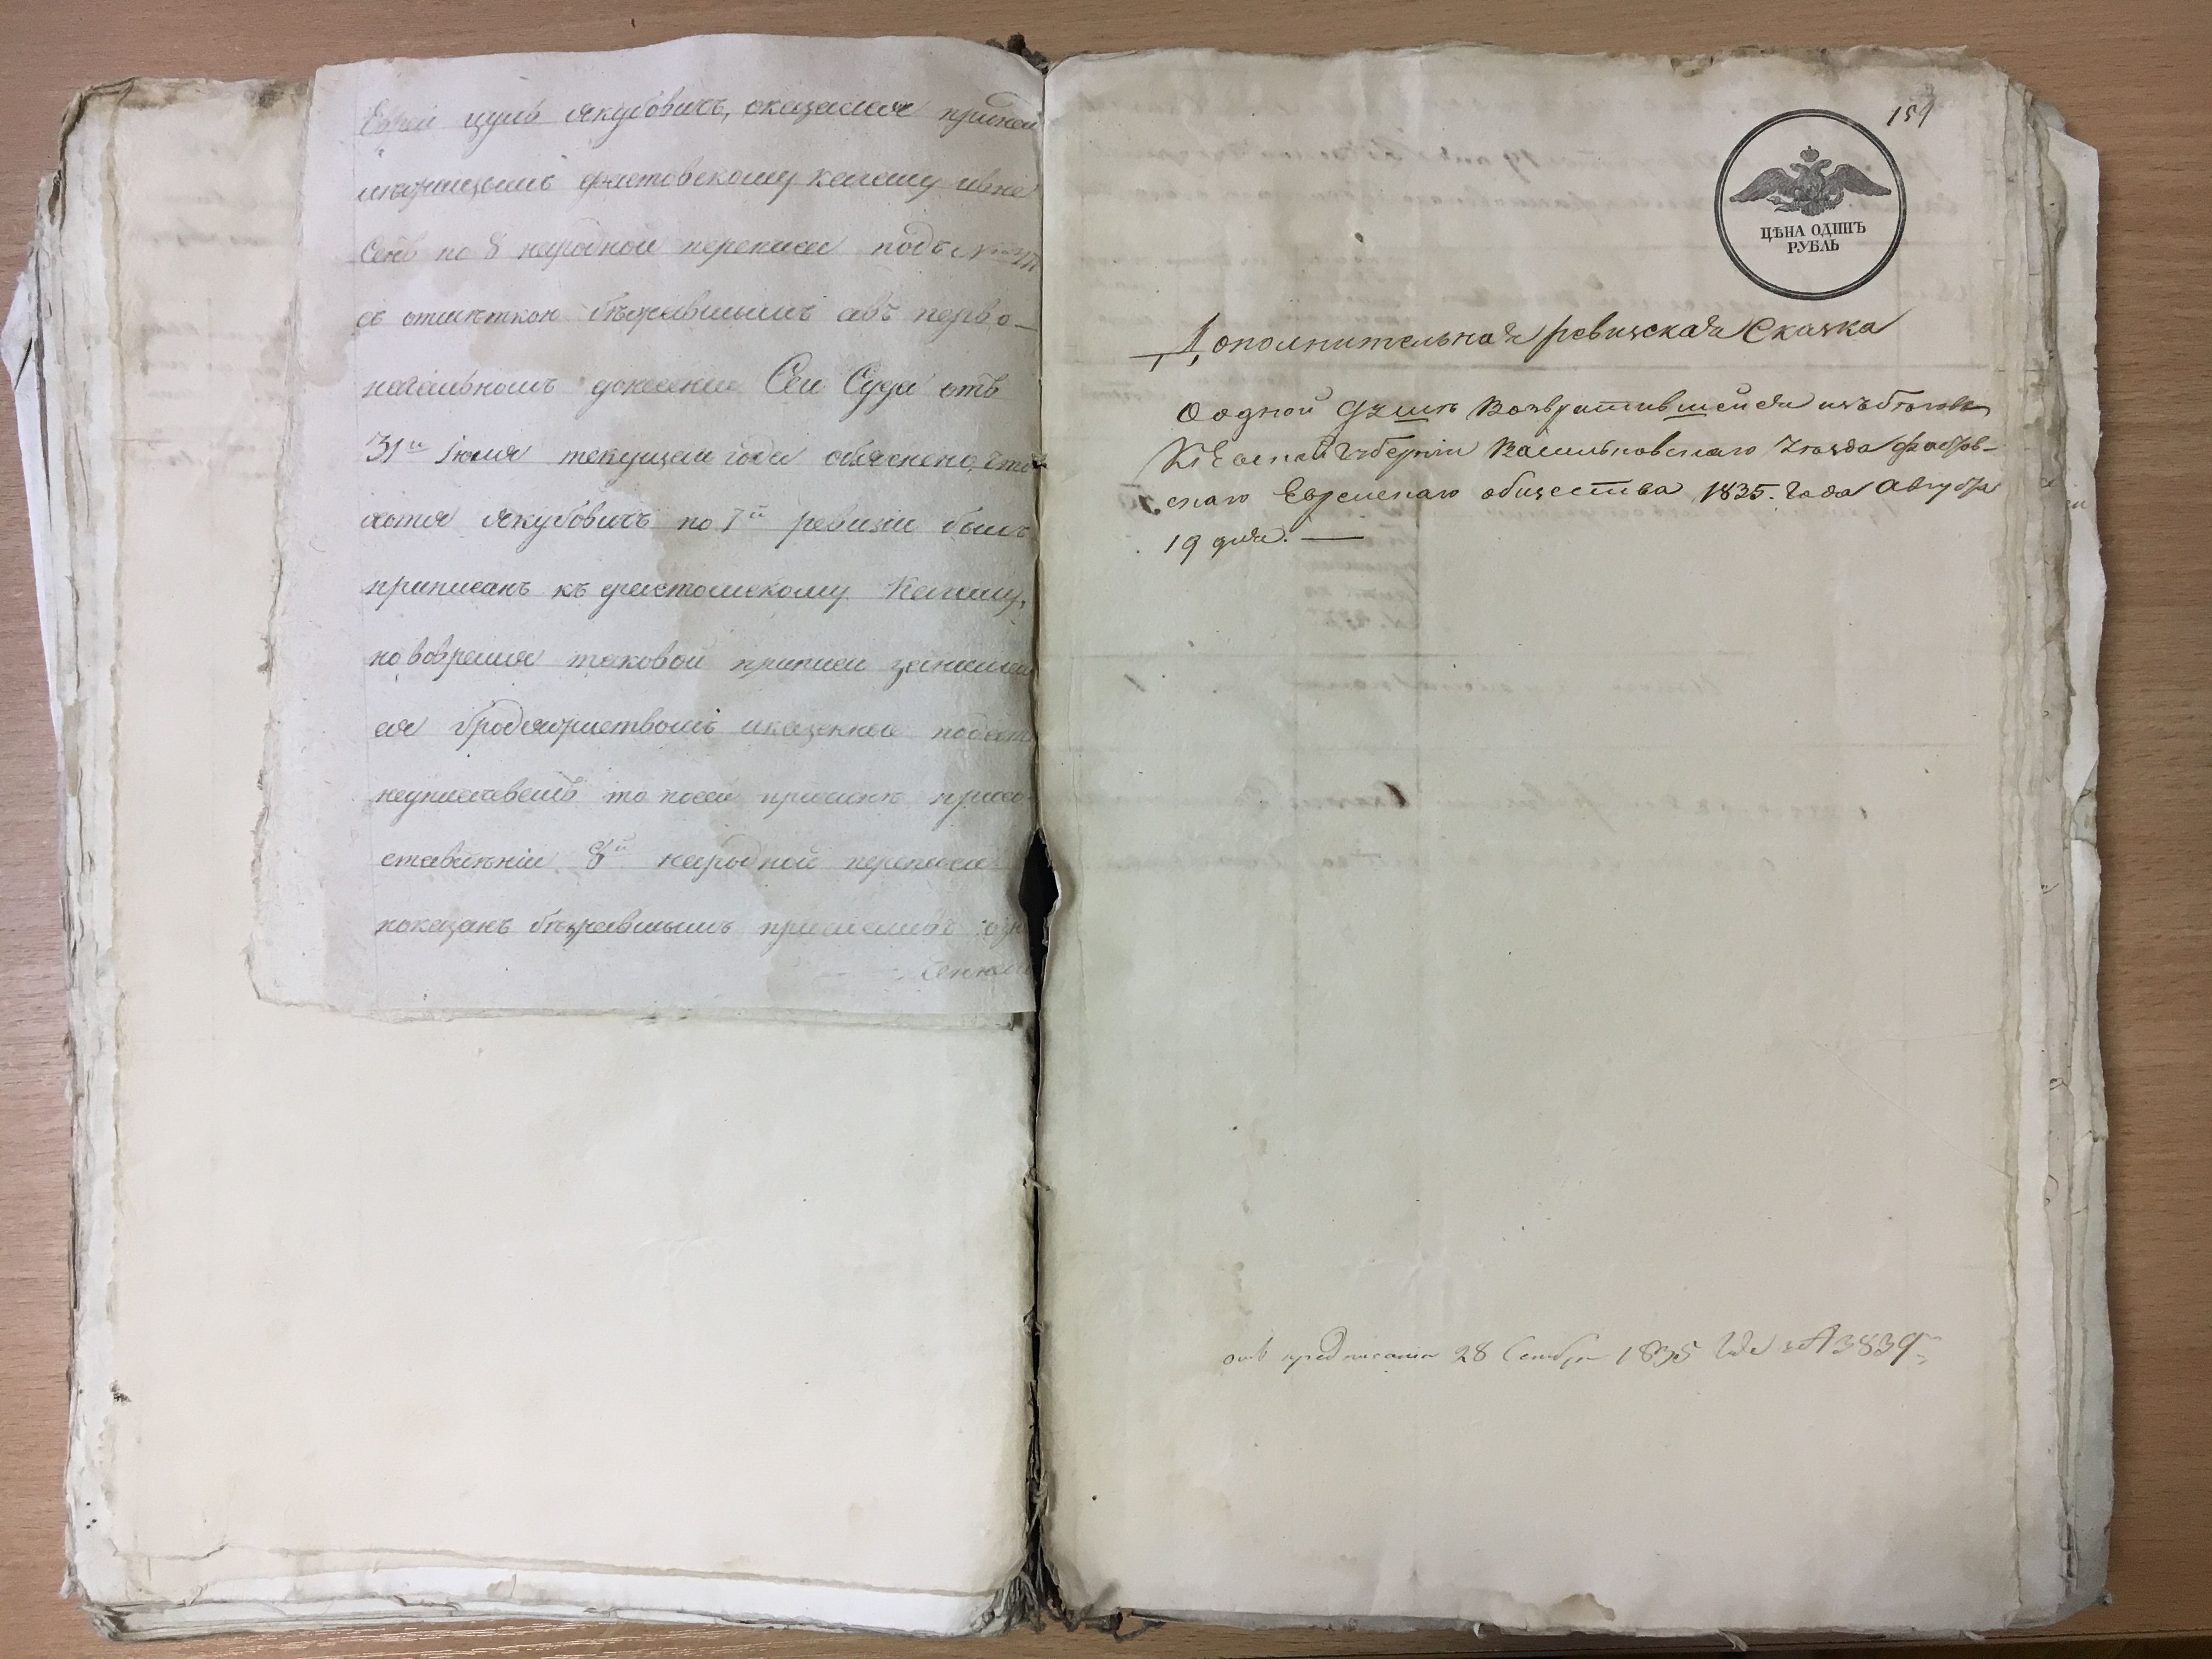 Еврей цуль Якубовичъ, оказался принад
лежащимъ фастовскому кагалу и вне
сенъ по 8 народной переписи подъ
съ отметкою бѣжавшымъ а въ перво-
начальномъ донесении Сей Суда отъ
31й Іюля текущаго года обяснено, что
хотя Якубовичъ по 7й ревизіи былъ
приписанъ къ фастовскому Кагалу,
но вовремя таковой приписи занимал
ся бродяжествомъ и казенныя подат
то посей причинѣ при со
ставленіи 8й народной переписи
показанъ бѣжавшымъ
159
ЦѢНА ОДИНЪ
РУБЛЬ
Дополнительная ревизская Сказка
О одной Душѣ возвратившейся изъ бѣговъ
Кіевской Губерніи Васильковскаго Уѣзда Фастов-
скаго Еврейскаго общества 1835. Года Августа
19 дня. —
отъ предписанія 28 Сентября 1835 Года 3839